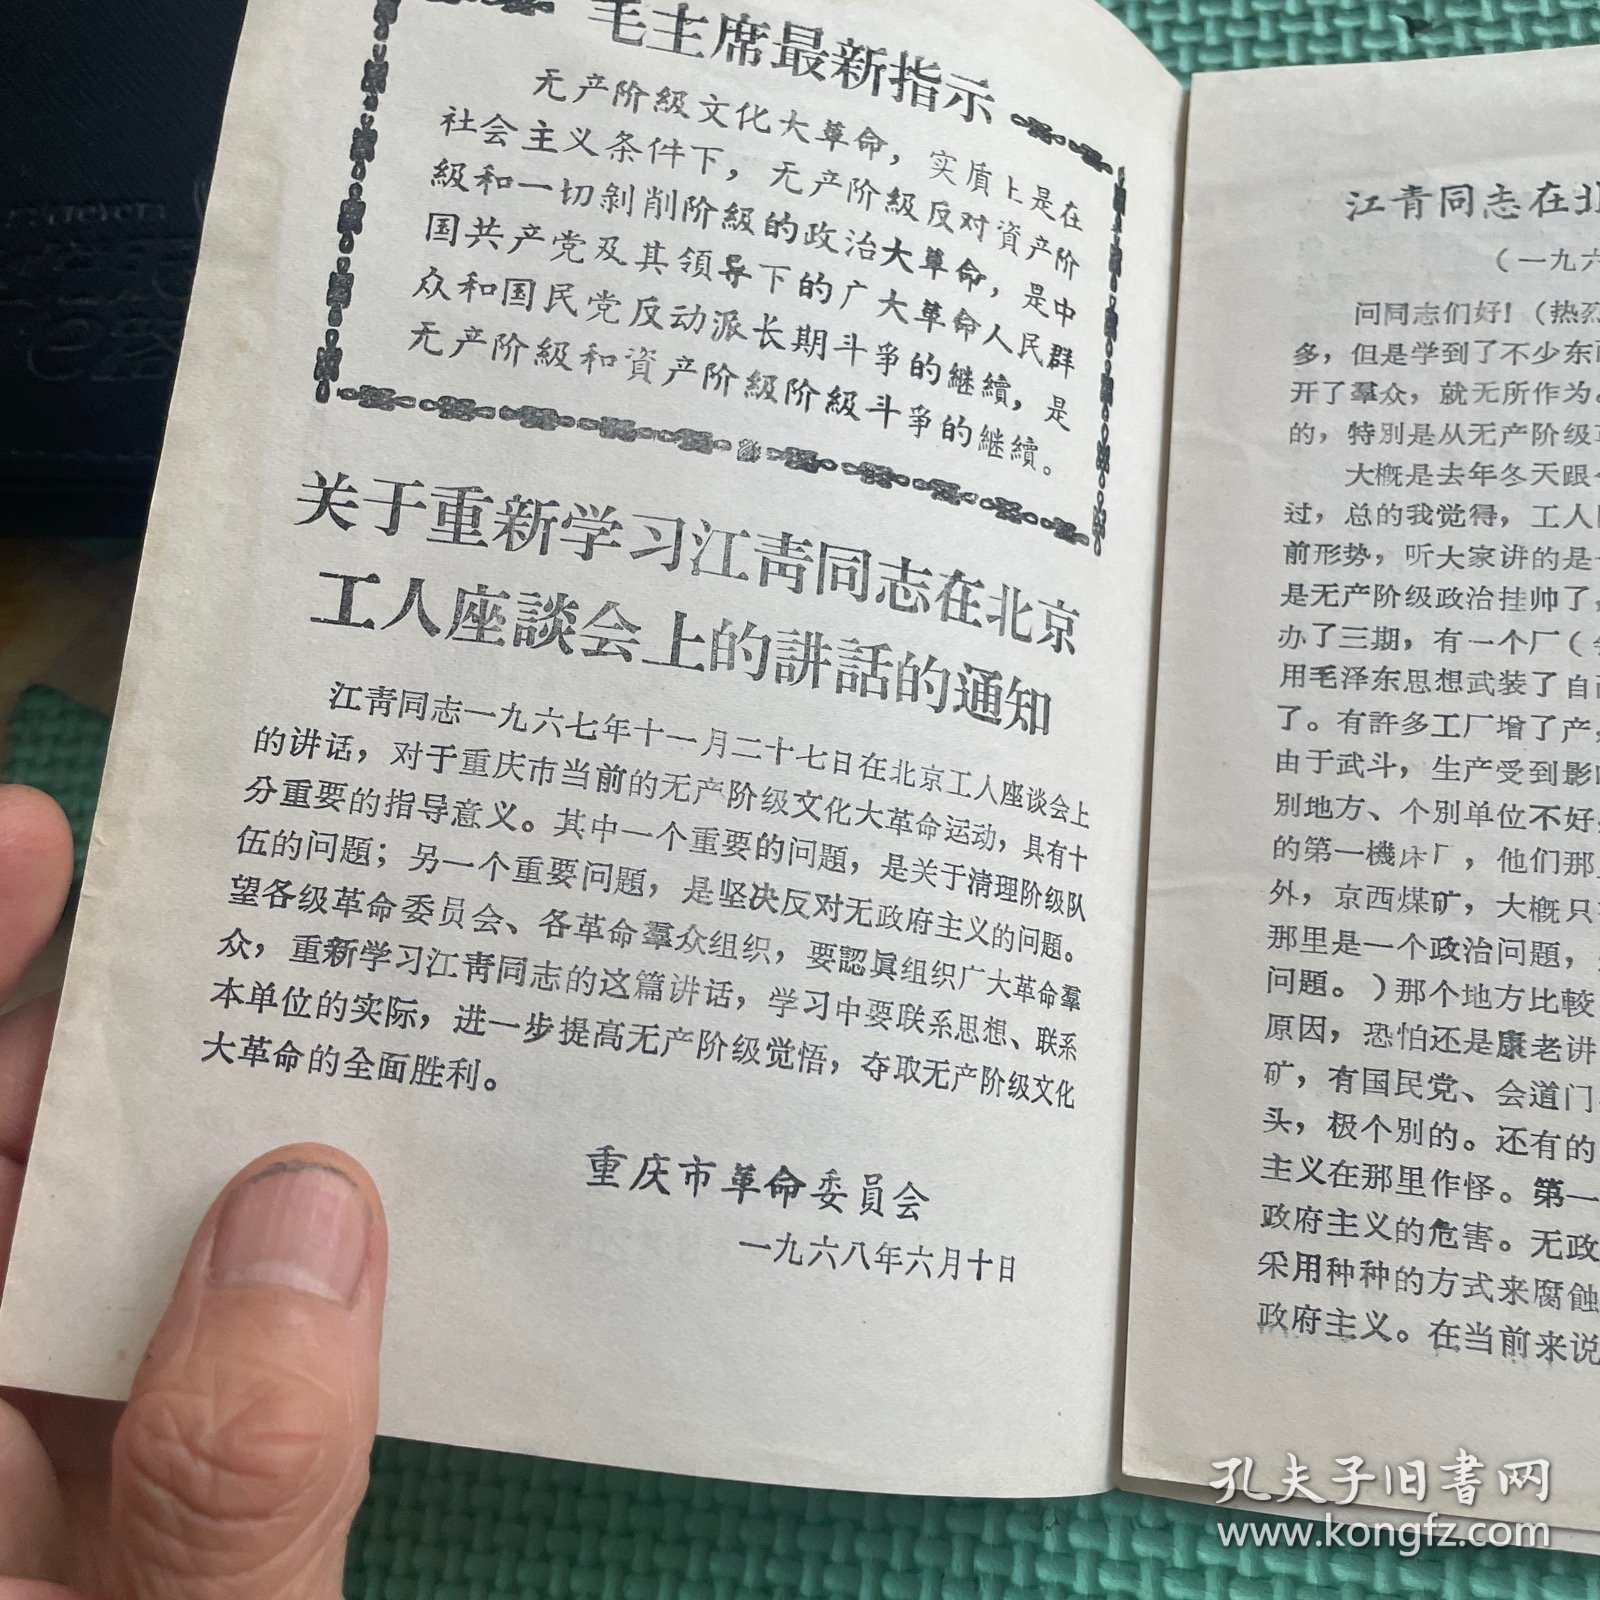 毛主席最新指示
无产阶級文化大革命，实质上是在
社会主义条件下，无产阶級反对資产阶
級和一切剝削阶級的政治大革命，是中
国共产党及其領导下的广大革命人民群
众和国民党反动派长期斗爭的継續，是
无产阶級和資产阶級阶級斗爭的継續。
关于重新学习江靑同志在北京
工人座談会上的講話的通知
江靑同志一九六七年十一月二十七日在北京工人座談会上
的讲话，对于重庆市当前的无产阶级文化大革命运动，具有十
分重要的指导意义。其中一个重要的问題，是关于清理阶级队
伍的问題；另一个重要问題，是坚决反对无政府主义的问題。
望各级革命委员会、各革命羣众组织，要認眞组织广大革命羣
众，重新学习江靑同志的这篇讲话，学习中要联系思想、联系
本单位的实际，进一步提高无产阶级觉悟，夺取无产阶级文化
大革命的全面胜利。
重庆市革命委員会
一九六八年六月十日
江青同志在北
（一九六
问同志们好！（热烈
多，但是学到了不少东西
开了羣众，就无所作为。
的，特别是从无产阶级
大概是去年冬天跟
过，总的我觉得，工人
前形势，听大家讲的是
是无产阶级政治挂帅了，
办了三期，有一个厂（
用毛泽东思想武装了自己
了。有許多工厂增了产，
由于武斗，生产受到影响
别地方、个别单位不好，
的第一機床厂，他们那里
外，京西煤矿，大概只
那里是一个政治问题，
问題。）那个地方比較
原因，恐怕还是康老讲
矿，有国民党、会道门
头，极个别的。还有的
主义在那里作怪。第一
政府主义的危害。无政
采用种种的方式来腐蝕
政府主义。在当前来说
孔夫子旧書网
www.kongfz.com